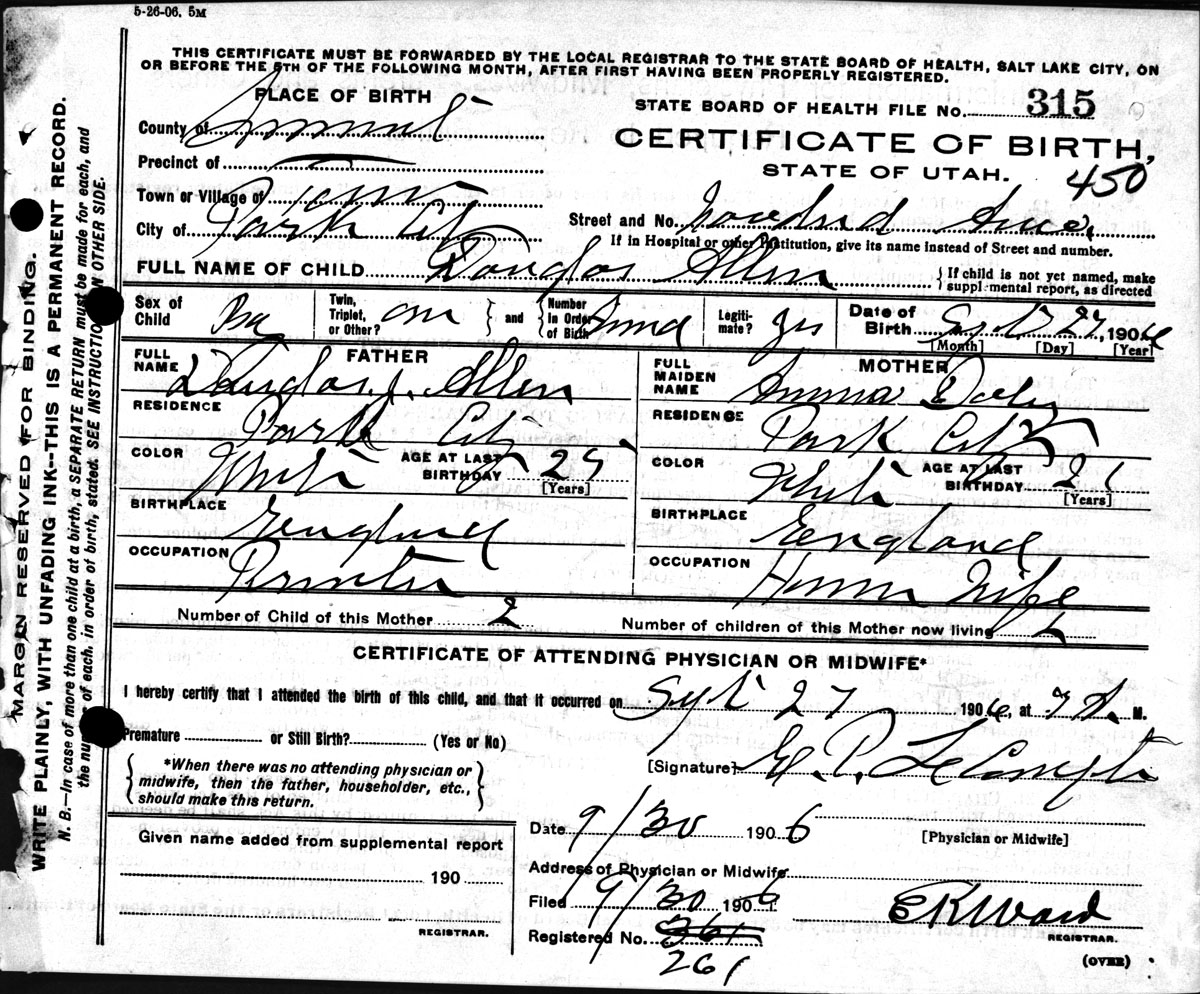 5-26-06. 5M
THIS CERTIFICATE MUST BE FORWARDED BY THE LOCAL REGISTRAR TO THE STATE BOARD OF HEALTH, SALT LAKE CITY, ON
OR BEFORE THE 5TH OF THE FOLLOWING MONTH, AFTER FIRST HAVING BEEN PROPERLY REGISTERED.
PLACE OF BIRTH
STATE BOARD OF HEALTH FILE NO. 315
County of Summit
CERTIFICATE OF BIRTH,
Precinct of
STATE OF UTAH.
450
Town or Village of
City of Park City
Street and No. Woodside Ave.
If in Hospital or other Institution, give its name instead of Street and number.
FULL NAME OF CHILD Douglas Allen
If child is not yet named, make
supplemental report, as directed
Sex of Child Boy
Twin, Triplet, or Other? one
and
Number In Order of Birth
Legitimate? yes
Date of Birth Sept 27, 1906
[Month] [Day] [Year]
FATHER
FULL NAME Douglas J. Allen
RESIDENCE Park City
COLOR White
AGE AT LAST BIRTHDAY 25
[Years]
BIRTHPLACE England
OCCUPATION
MOTHER
FULL MAIDEN NAME Daley
RESIDENCE Park City
COLOR White
AGE AT LAST BIRTHDAY 21
[Years]
BIRTHPLACE England
OCCUPATION House Wife
Number of Child of this Mother 2
Number of children of this Mother now living 2
CERTIFICATE OF ATTENDING PHYSICIAN OR MIDWIFE*
I hereby certify that I attended the birth of this child, and that it occurred on Sept 27 1906, at 7 A. M.
Premature or Still Birth? (Yes or No)
*When there was no attending physician or
midwife, then the father, householder, etc.,
should make this return.
[Signature] E. P. LeCompte
Date 9/30 1906
[Physician or Midwife]
Given name added from supplemental report
190
REGISTRAR.
Address of Physician or Midwife
Filed 9/30 1906
E K Ward
REGISTRAR.
Registered No. 361
261
(OVER)
MARGIN RESERVED FOR BINDING.
WRITE PLAINLY, WITH UNFADING INK--THIS IS A PERMANENT RECORD.
N. B.—In case of more than one child at a birth, a SEPARATE RETURN must be made for each, and
the number of each, in order of birth, stated. SEE INSTRUCTION ON OTHER SIDE.